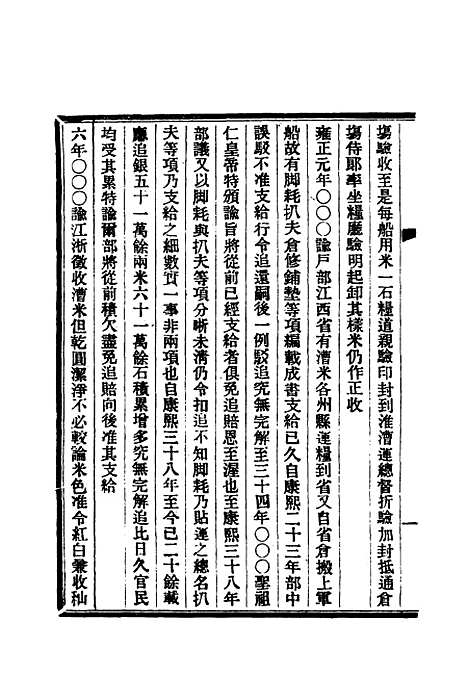 塲驗收至是每船用米一石糧道親驗印封到淮漕運總督折驗加封抵通倉
塲侍郞率坐糧廳驗明起卸其樣米仍作正收
雍正元年〇〇〇諭戶部江西省有漕米各州縣運糧到省又自省倉搬上軍
船故有脚耗扒夫倉修鋪墊等項編載成書支給已久自康熙二十三年部中
誤駁不准支給行令追還嗣後一例駁追究無完解至三十四年〇〇〇聖祖
仁皇帝特頒諭旨將從前已經支給者俱免追賠恩至渥也至康熙三十八年
部議又以脚耗與扒夫等項分晰未淸仍令扣追不知脚耗乃貼運之總名扒
夫等項乃支給之細數實一事非兩項也自康熙三十八年至今已二十餘載
應追銀五十一萬餘兩米六十一萬餘石積累增多究無完解追比日久官民
均受其累特諭爾部將從前積欠盡免追賠向後准其支給
六年〇〇〇諭江浙徵收漕米但乾圓潔淨不必較論米色准令紅白兼收秈